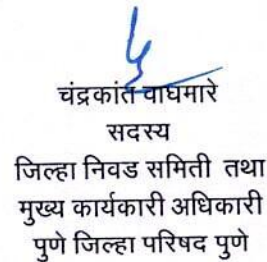 चंद्रकांत वाघमारे
सदस्य
जिल्हा निवड समिती तथा
मुख्य कार्यकारी अधिकारी
पुणे जिल्हा परिषद पुणे